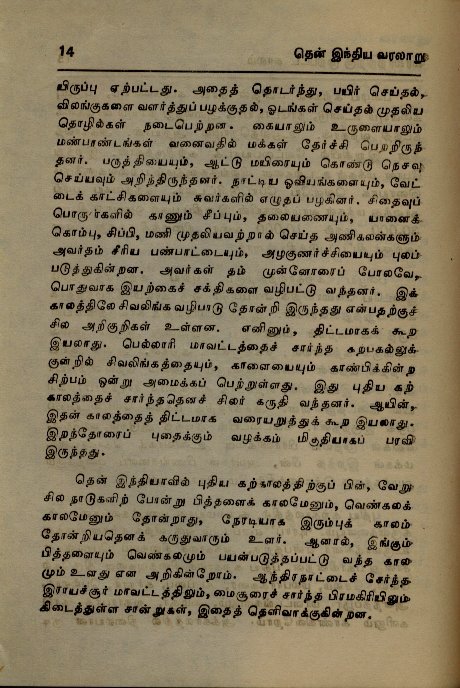 14 தென் இந்திய வரலாறு
யிருப்பு ஏற்பட்டது. அதைத் தொடர்ந்து, பயிர் செய்தல்,
விலங்குகளை வளர்த்துப் பழக்குதல், ஓடங்கள் செய்தல் முதலிய
தொழில்கள் நடைபெற்றன. கையாலும் உருளையாலும்
மண்பாண்டங்கள் வனைவதில் மக்கள் தேர்ச்சி பெற்றிருந்
தனர். பருத்தியையும், ஆட்டு மயிரையும் கொண்டு நெசவு
செய்யவும் அறிந்திருந்தனர். நாட்டிய ஓவியங்களையும், வேட்
டைக் காட்சிகளையும் சுவர்களில் எழுதப் பழகினர். சிதைவுப்
பொருள்களில் காணும் சீப்பும், தலையணையும், யானைக்
கொம்பு, சிப்பி, மணி முதலியவற்றால் செய்த அணிகலன்களும்
அவர்தம் சீரிய பண்பாட்டையும், அழகுணர்ச்சியையும் புலப்
படுத்துகின்றன. அவர்கள் தம் முன்னோரைப் போலவே,
பொதுவாக இயற்கைச் சக்திகளை வழிபட்டு வந்தனர். இக்
காலத்திலே சிவலிங்க வழிபாடு தோன்றி இருந்தது என்பதற்குச்
சில அறிகுறிகள் உள்ளன. எனினும், திட்டமாகக் கூற
இயலாது. பெல்லாரி மாவட்டத்தைச் சார்ந்த கறபகல்லுக்
குன்றில் சிவலிங்கத்தையும், காளையையும் காண்பிக்கின்ற
சிற்பம் ஒன்று அமைக்கப் பெற்றுள்ளது. இது புதிய கற்
காலத்தைச் சார்ந்ததெனச் சிலர் கருதி வந்தனர். ஆயின்,
இதன் காலத்தைத் திட்டமாக வரையறுத்துக் கூற இயலாது.
இறந்தோரைப் புதைக்கும் வழக்கம் மிகுதியாகப் பரவி
இருந்தது.
தென் இந்தியாவில் புதிய கற்காலத்திற்குப் பின், வேறு
சில நாடுகளிற் போன்று பித்தளைக் காலமேனும், வெண்கலக்
காலமேனும் தோன்றாது, நேரடியாக இரும்புக் காலம்
தோன்றியதெனக் கருதுவாரும் உளர். ஆனால், இங்கும்
பித்தளையும் வெண்கலமும் பயன்படுத்தப்பட்டு வந்த கால
மும் உளது என அறிகின்றோம். ஆந்திரநாட்டைச் சேர்ந்த
இராயச்சூர் மாவட்டத்திலும், மைசூரைச் சார்ந்த பிரமகிரியிலும்
கிடைத்துள்ள சான்றுகள், இதைத் தெளிவாக்குகின்றன.